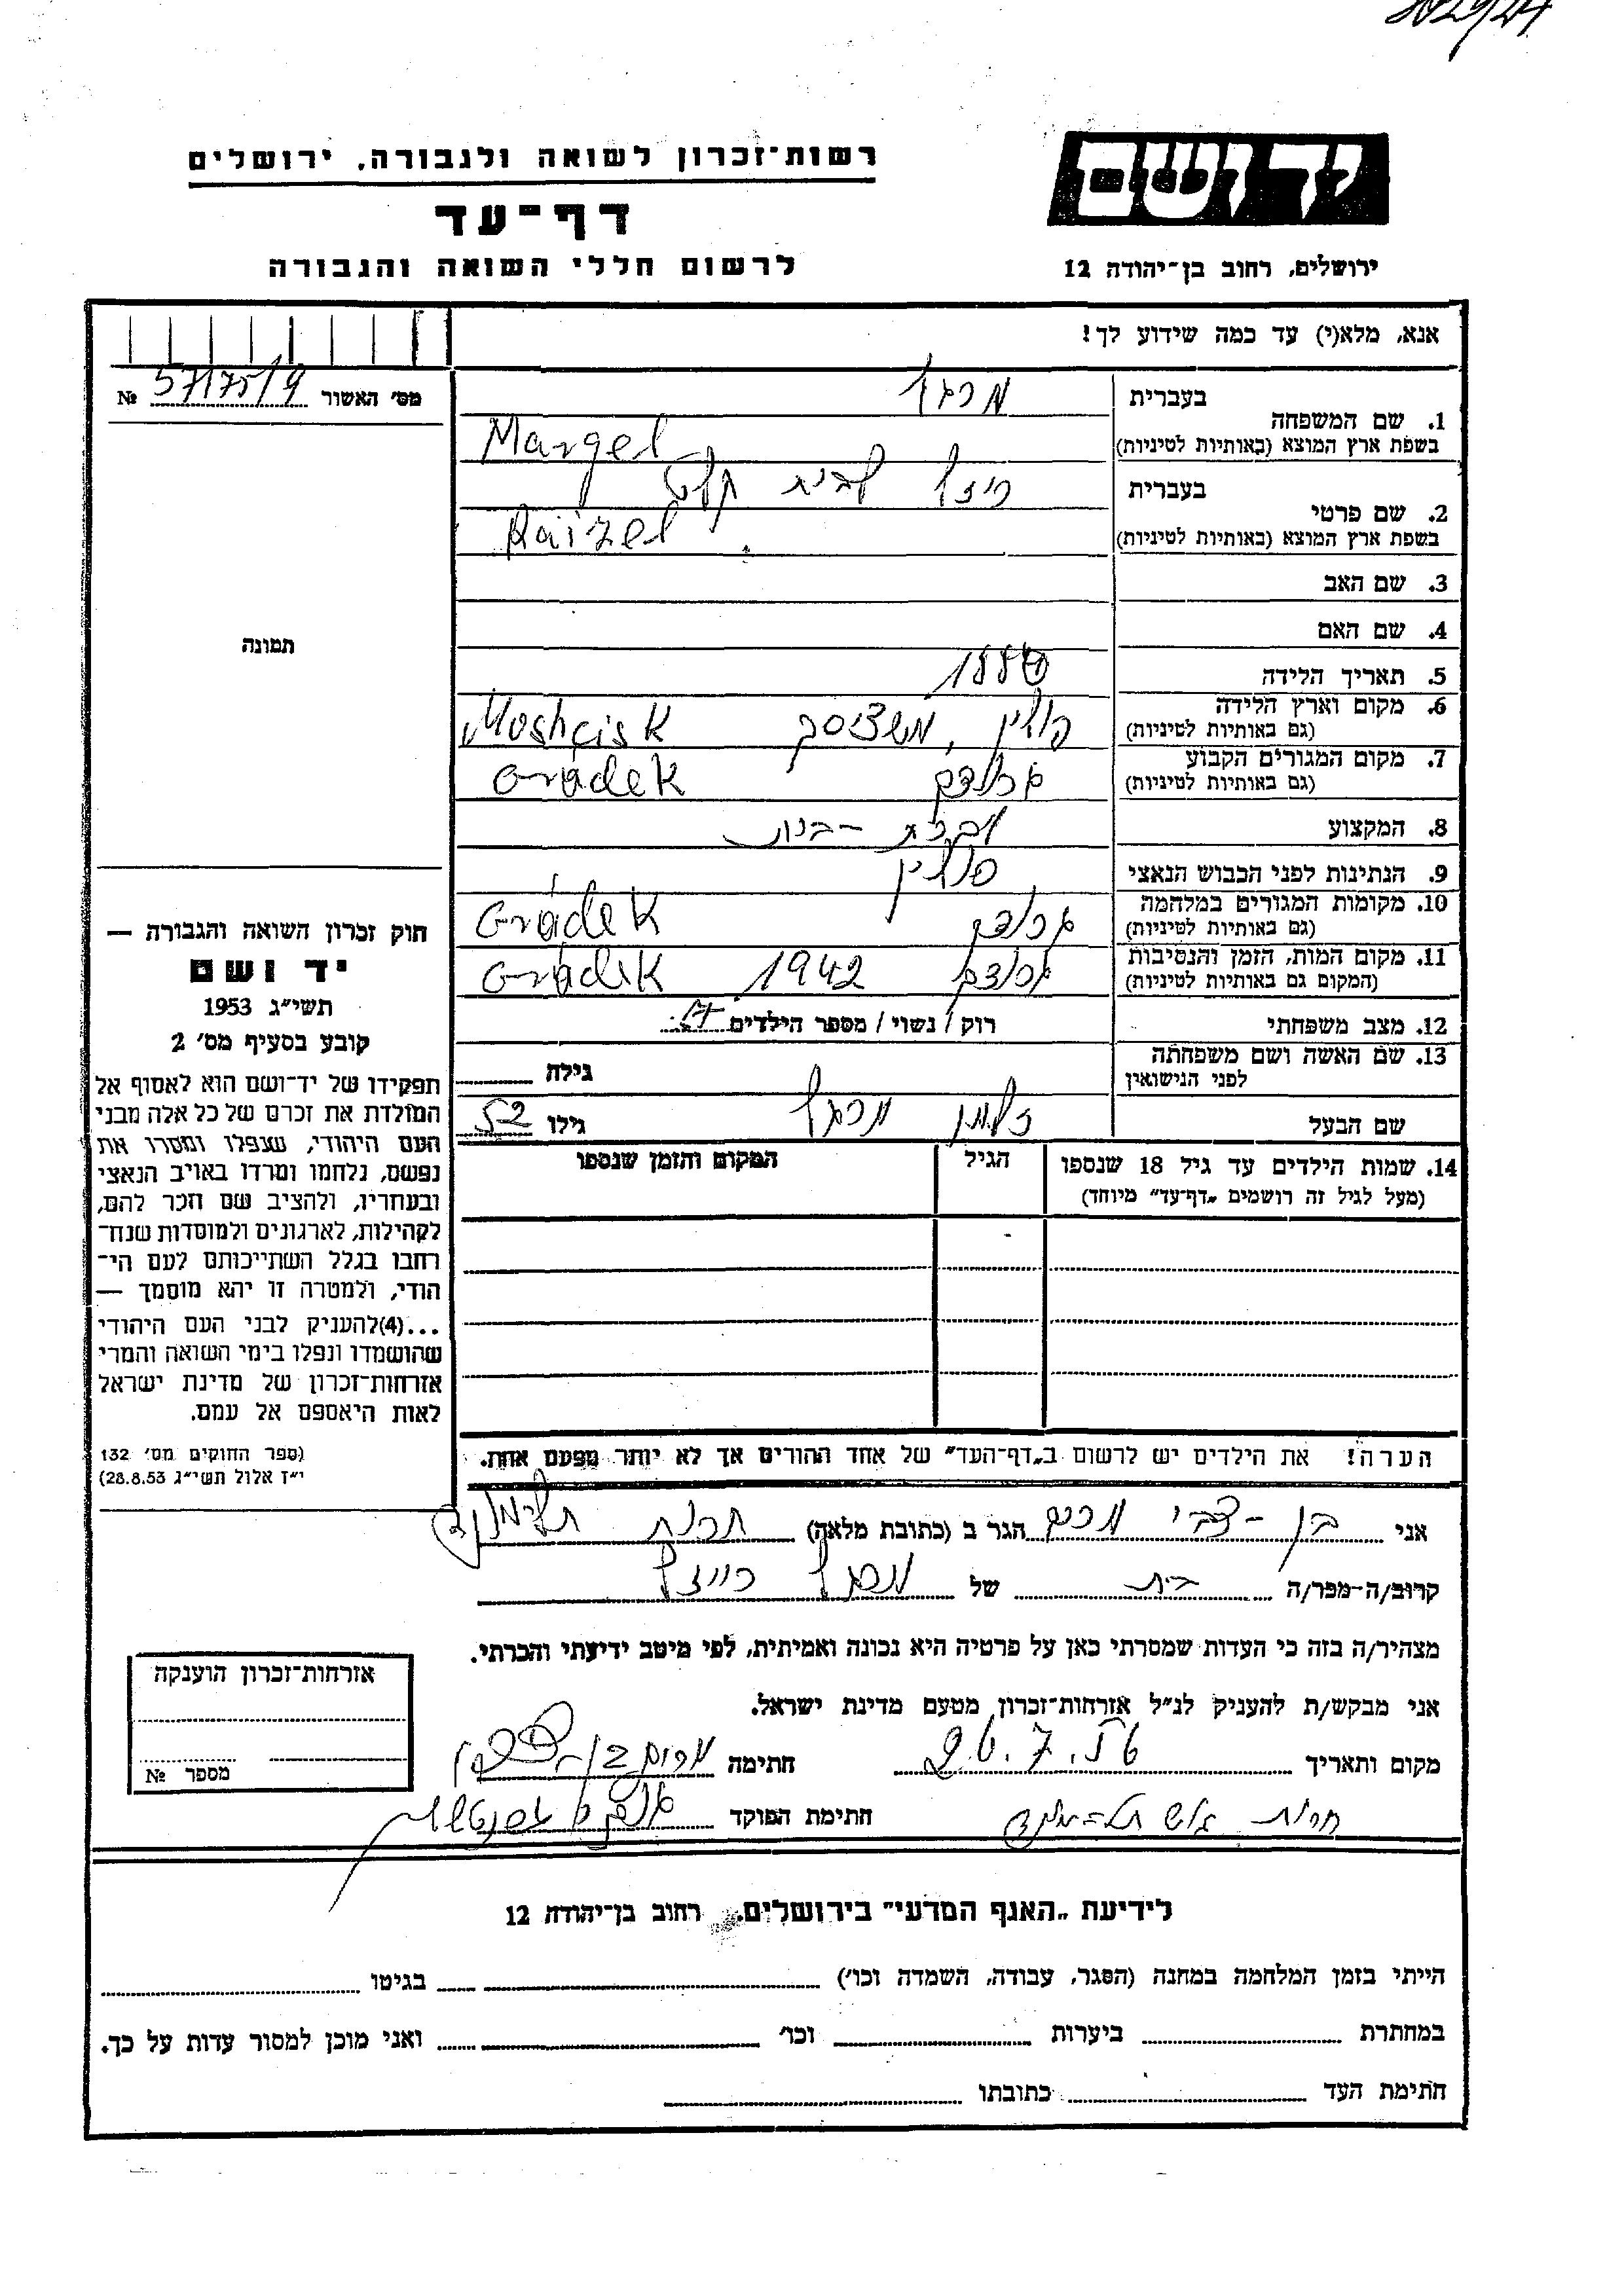 רשות־זכרון לשואה ולגבורה, ירושלים
דף־עד
לרשום חללי השואה והגבורה
יד ושם
ירושלים, רחוב בן־יהודה 12
אנא, מלא(י) עד כמה שידוע לך!
מס׳ האשור 57175/9 №
בעברית מרגל
1. שם המשפחה
בשפת ארץ המוצא (באותיות לטיניות) Margel
בעברית רייזל לבית
2. שם פרטי
בשפת ארץ המוצא (באותיות לטיניות) Raizel
3. שם האב
4. שם האם
5. תאריך הלידה
6. מקום וארץ הלידה פולין, משציסק Moshcisk
(גם באותיות לטיניות)
7. מקום המגורים הקבוע גרודק Gradek
(גם באותיות לטיניות)
8. המקצוע עקרת-בית
9. הנתינות לפני הכבוש הנאצי פולין
10. מקומות המגורים במלחמה גרודק Gradek
(גם באותיות לטיניות)
11. מקום המות, הזמן והנסיבות גרודק 1942 Gradek
(המקום גם באותיות לטיניות)
12. מצב משפחתי רוק / נשוי / מספר הילדים
13. שם האשה ושם משפחתה
לפני הנישואין גילה
שם הבעל זלמן מרגל גילו 52
14. שמות הילדים עד גיל 18 שנספו הגיל המקום והזמן שנספו
(מעל לגיל זה רושמים „דף־עד״ מיוחד)
הערה! את הילדים יש לרשום ב„דף־העד״ של אחד ההורים אך לא יותר מפעם אחת.
תמונה
חוק זכרון השואה והגבורה —
יד ושם
תשי״ג 1953
קובע בסעיף מס׳ 2
תפקידו של יד־ושם הוא לאסוף אל
המולדת את זכרם של כל אלה מבני
העם היהודי, שנפלו ומסרו את
נפשם, נלחמו ומרדו באויב הנאצי
ובעוזריו, ולהציב שם וזכר להם,
לקהילות, לארגונים ולמוסדות שנח־
רבו בגלל השתייכותם לעם הי־
הודי, ולמטרה זו יהא מוסמך —
...(4) להעניק לבני העם היהודי
שהושמדו ונפלו בימי השואה והמרי
אזרחות־זכרון של מדינת ישראל
לאות היאספם אל עמם.
(ספר החוקים מס׳ 132
י״ז אלול תשי״ג 28.8.53)
אני בן-צבי מרים הגר ב (כתובת מלאה)
קרוב/ה-מכר/ה בת של מרגל רייזל
מצהיר/ה בזה כי העדות שמסרתי כאן על פרטיה היא נכונה ואמיתית, לפי מיטב ידיעתי והכרתי.
אני מבקש/ת להעניק לנ״ל אזרחות־זכרון מטעם מדינת ישראל.
מקום ותאריך חתימה מרים בן-צבי
חתימת הפוקד
אזרחות־זכרון הוענקה
מספר №
לידיעת „האגף המדעי״ בירושלים, רחוב בן־יהודה 12
הייתי בזמן המלחמה במחנה (הסגר, עבודה, השמדה וכו׳) בגיטו
במחתרת ביערות וכו׳ ואני מוכן למסור עדות על כך.
חתימת העד כתובתו